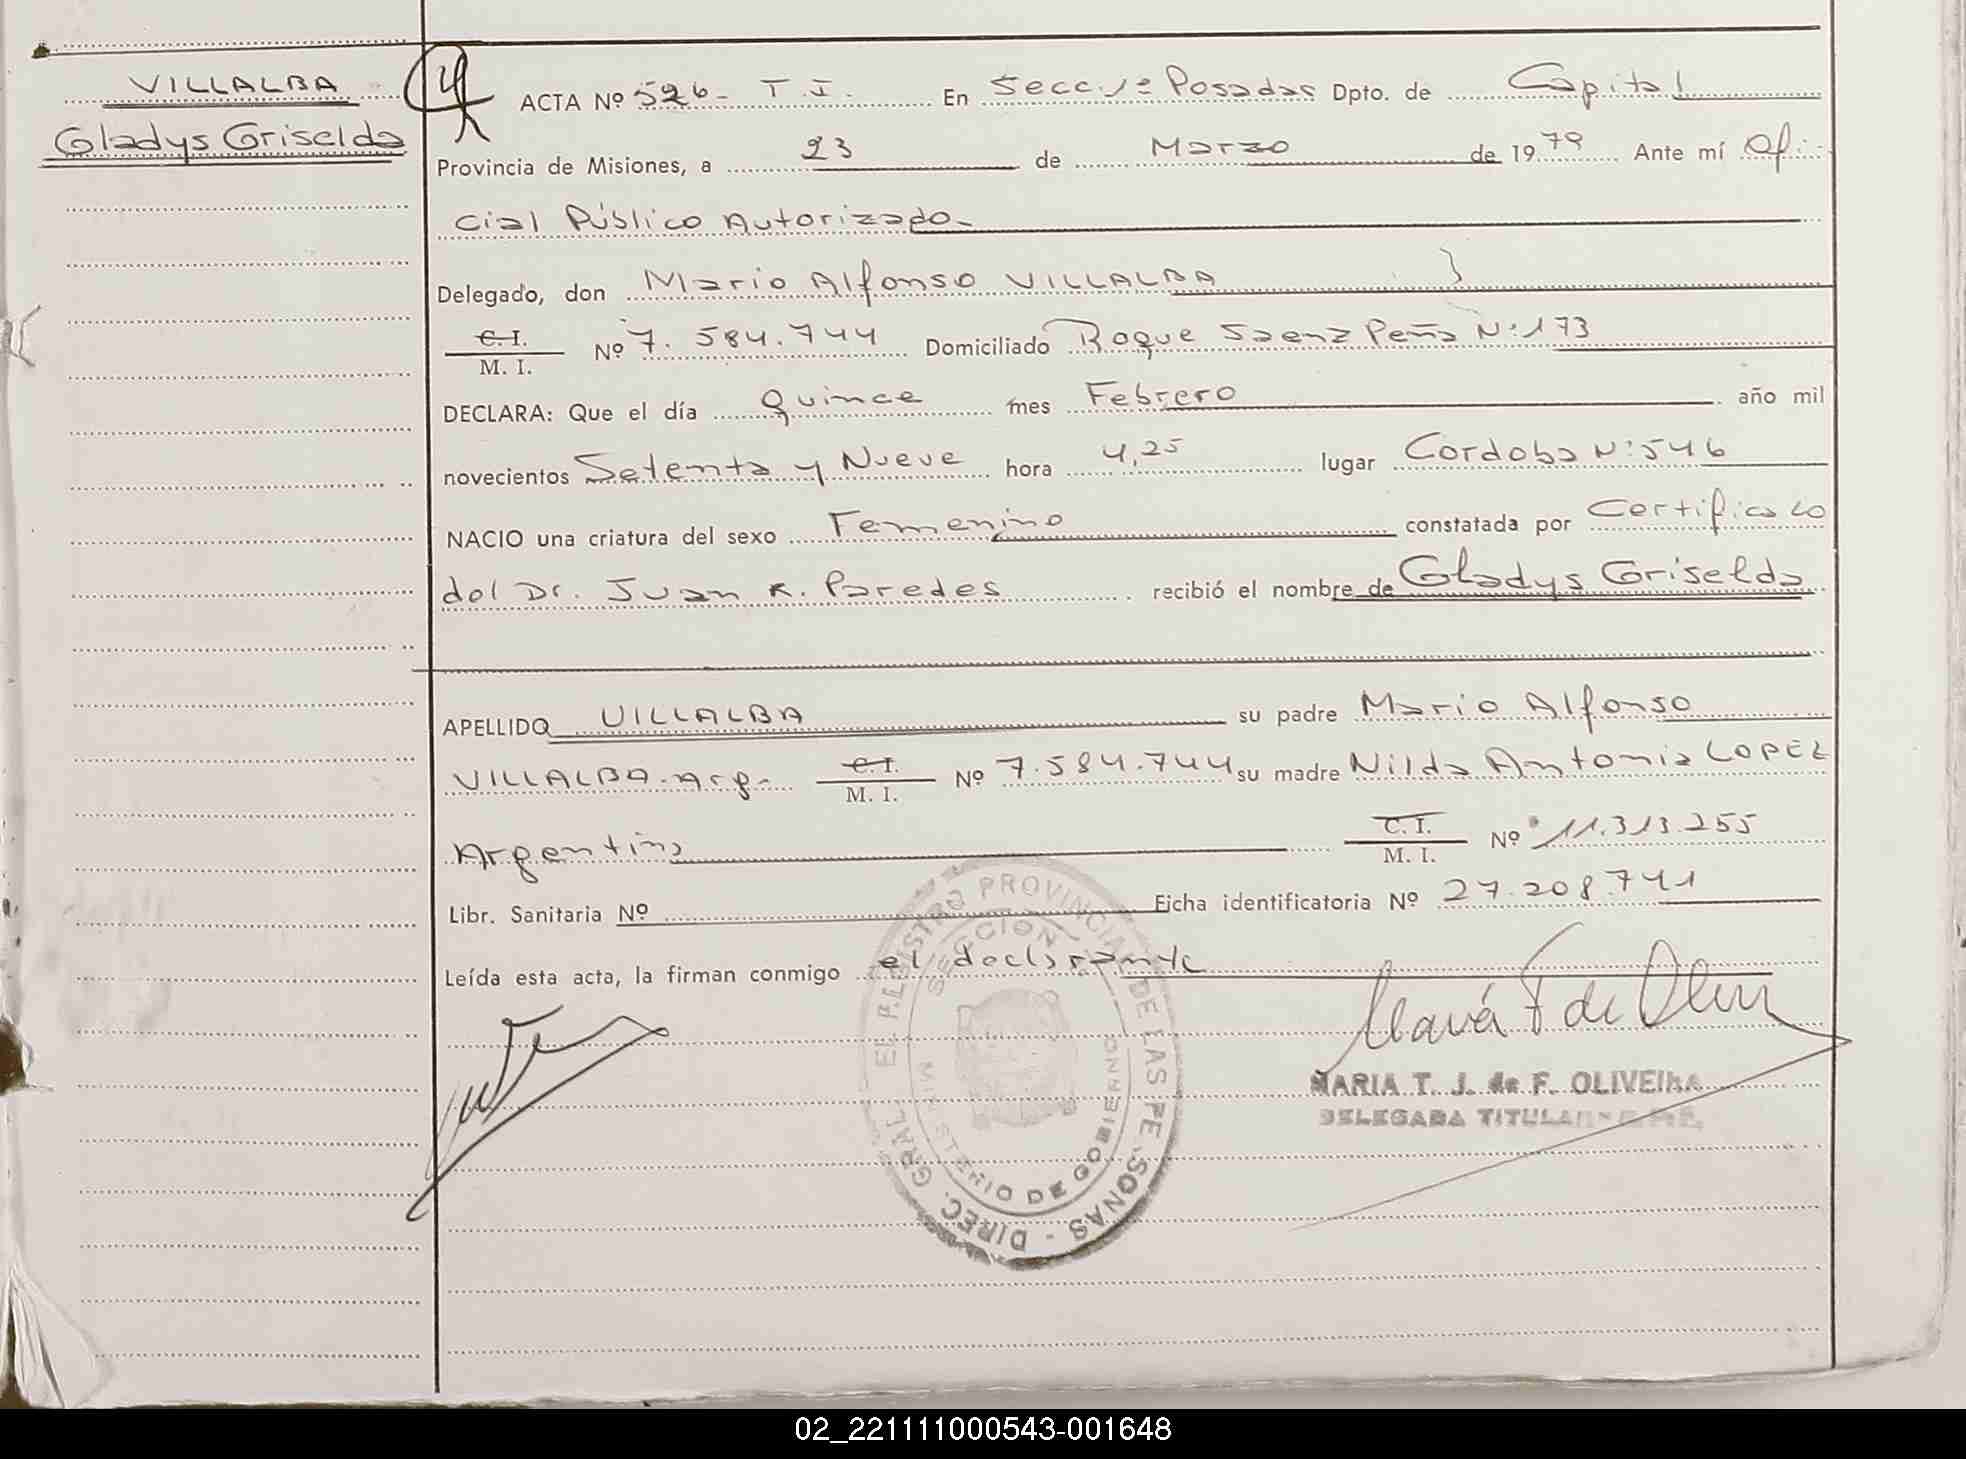 VILLALBA
Gladys Griselda
ACTA Nº 526- T.I. En Secc. 1ª Posadas Dpto. de Capital
Provincia de Misiones, a 23 de Marzo de 1979 Ante mí Ofi-
cial Público Autorizado-
Delegado, don Mario Alfonso VILLALBA
C.I.
M. I. Nº 7.584.744 Domiciliado Roque Saenz Peña Nº 173
DECLARA: Que el día Quince mes Febrero año mil
novecientos Setenta y Nueve hora 4,25 lugar Cordoba Nº 546
NACIO una criatura del sexo Femenino constatada por Certificado
del Dr. Juan R. Paredes recibió el nombre de Gladys Griselda
APELLIDO VILLALBA su padre Mario Alfonso
VILLALBA-Arg- C.I. M. I. Nº 7.584.744 su madre Nilda Antonia LOPEZ
Argentina C.I. M. I. Nº 11.313.255
Libr. Sanitaria Nº Ficha identificatoria Nº 27.208.741
Leída esta acta, la firman conmigo el declarante
DIREC. GRAL. EL REGISTRO PROVINCIAL DE LAS PERSONAS -
SECCION
MINISTERIO DE GOBIERNO
MARIA T. J. de F. OLIVEIRA
DELEGADA TITULAR
02_221111000543-001648